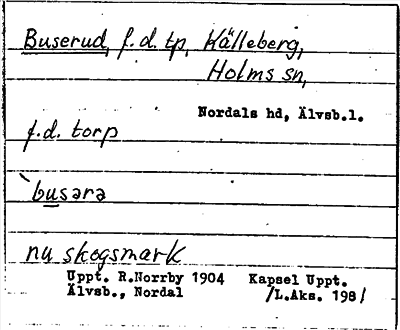 Buserud, f.d. tp, Källeberg,
Holms sn,
Nordals hd, Älvsb.l.
f.d. torp
`busara
nu skogsmark
Uppt. R.Norrby 1904 Kapsel Uppt.
Älvsb., Nordal /L.Aks. 1981